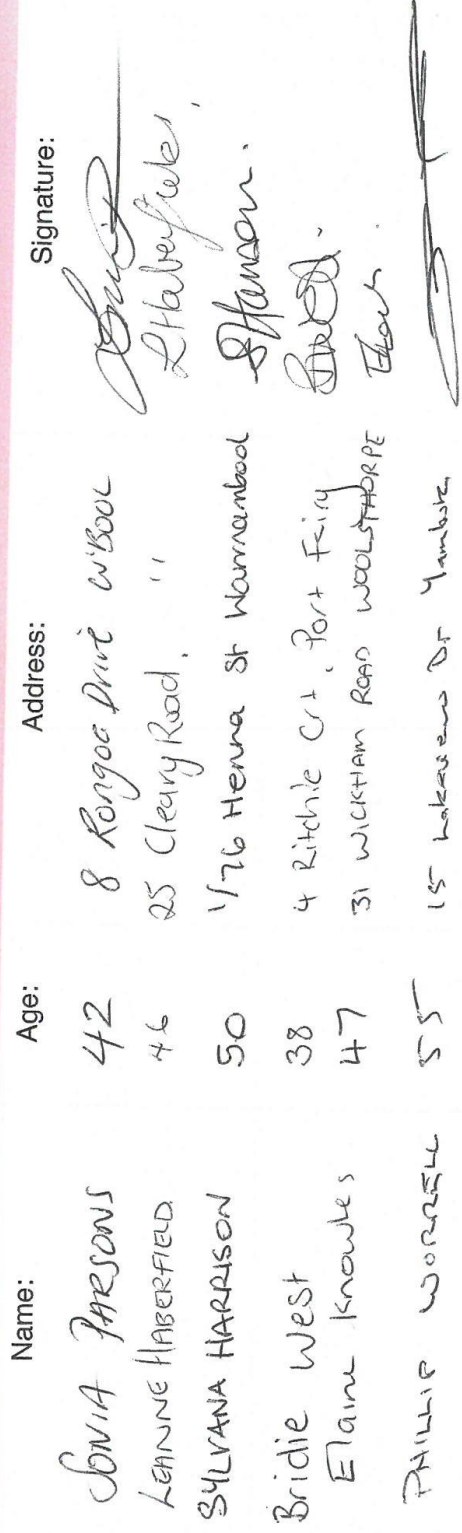 Name: Age: Address: Signature:
SONIA PARSONS 42 8 Rongoa Drive W'BOOL
LEANNE HABERFIELD. 46 25 Cleary Road. " LHaberfield.
SYLVANA HARRISON 50 1/76 Henna St Warrnambool SHarrison.
Bridie West 38 4 Ritchie Crt. Port Fairy
Elaine Knowles 47 31 WICKHAM ROAD WOOLSTHORPE
PHILLIP WORRELL 55 15 Lakeview Dr Yambuk